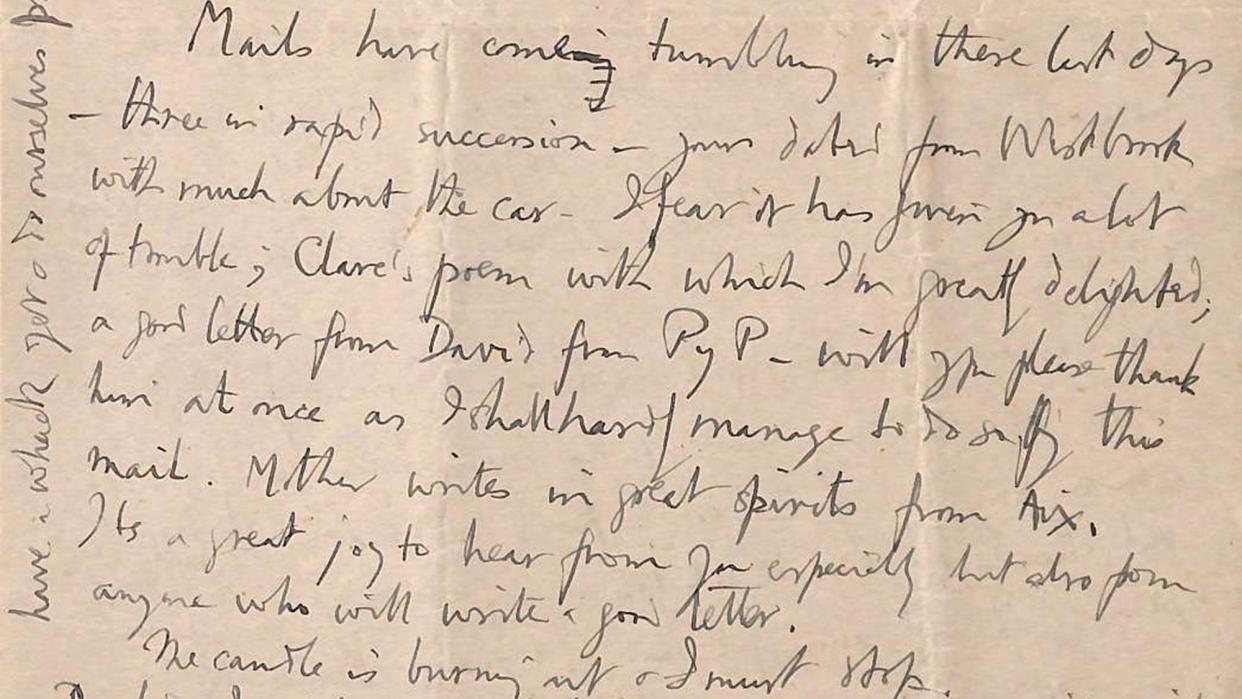 Mails have come tumbling in these last days
– three in rapid succession – yours dated from Westbrook
with much about the car – I fear it has given you a lot
of trouble; Clare's poem with which I'm greatly delighted;
a good letter from David from PyP – will you please thank
him at once as I shall hardly manage to do so by this
mail. Mother writes in great spirits from Aix.
Its a great joy to hear from you especially but also from
anyone who will write a good letter.
The candle is burning out & I must stop.
have a whack yet o to ourselves